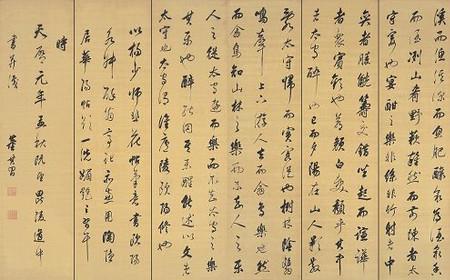 溪而漁溪深而魚肥釀泉為酒泉香
而酒洌山肴野蔌雜然而前陳者太
守宴也宴酣之樂非絲非竹射者中
奕者勝觥籌交錯坐起而諠譁
者眾賓歡也蒼顏白髮頹乎其中
者太守醉也已而夕陽在山人影散
亂太守歸而賓客從也樹林陰翳
鳴聲上下遊人去而禽鳥樂也然
而禽鳥知山林之樂而不知人之樂
人之從太守遊而樂而不知太守之樂
其樂也醉能同其樂醒能述以文者
太守也太守謂誰廬陵歐陽修也
以楊少師韭花帖筆意書歐陽
永叔醉翁亭記用陶隱
居華陽帖一洗媚豔之習
時
天啓元年孟秋既望毘陵道中
書并識 董其昌